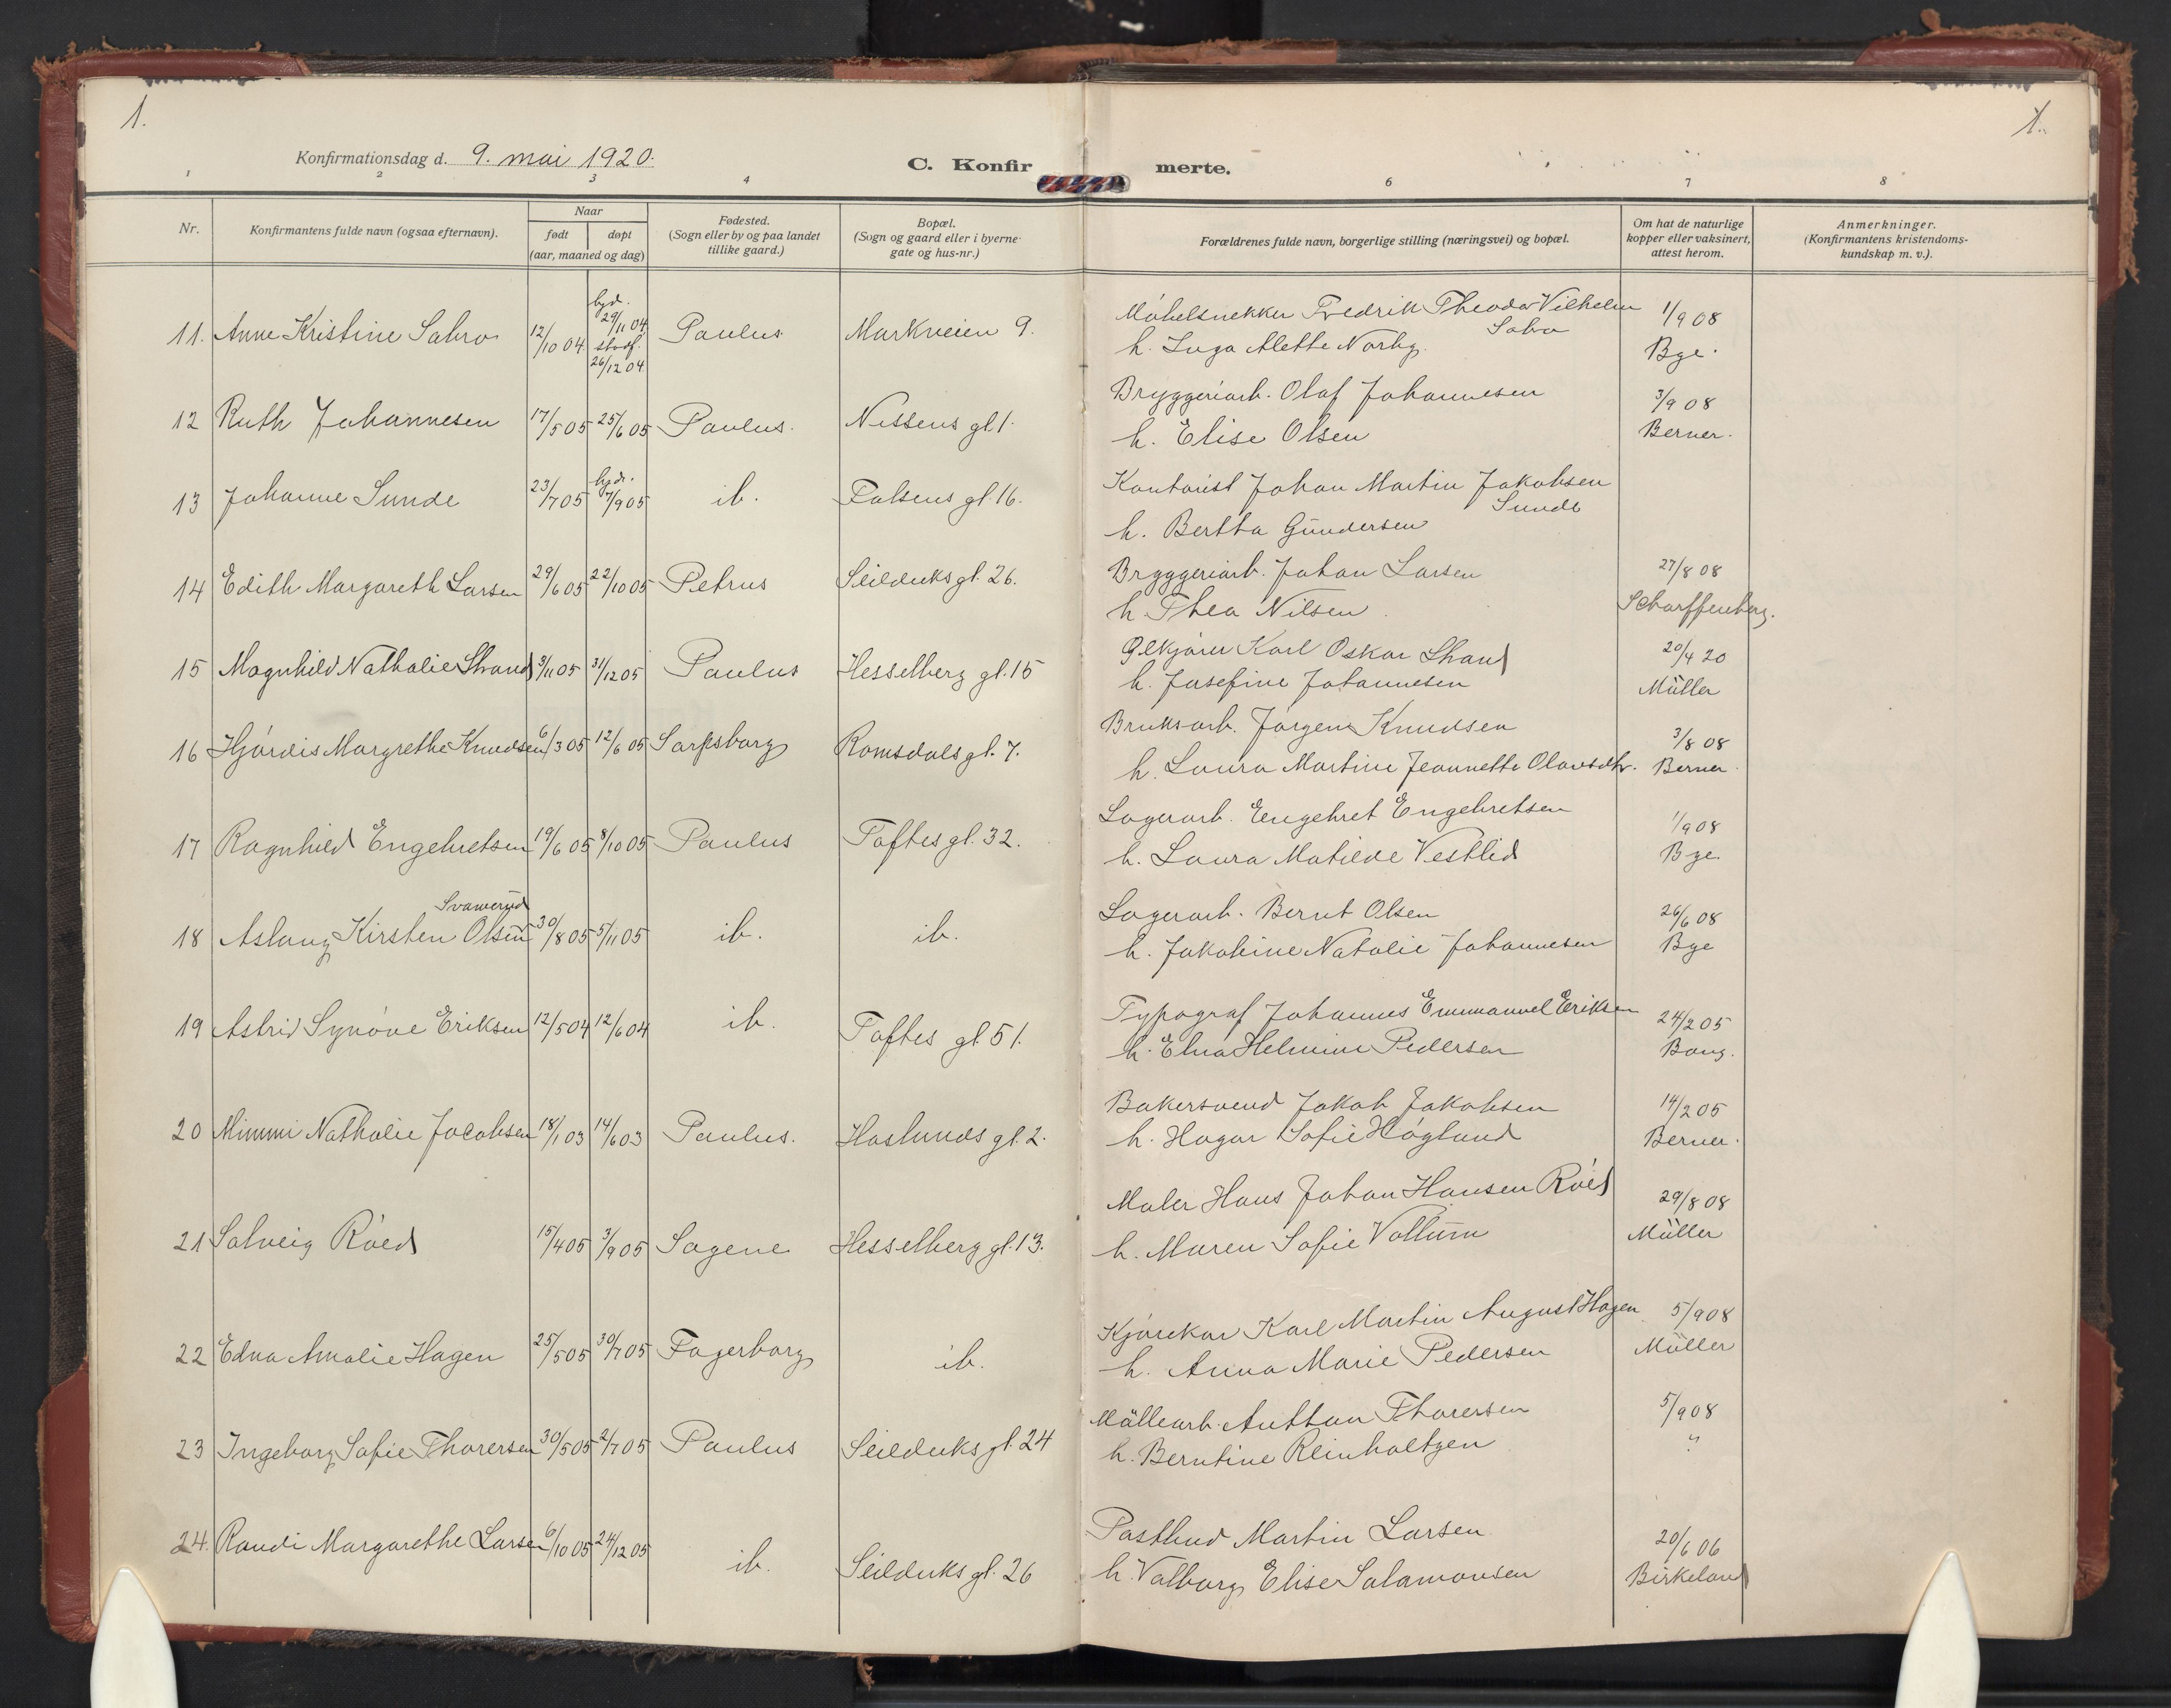 1.
1.
Konfirmationsdag d. 9. mai 1920.
C. Konfirmerte.
1 2 3 4 6 7 8
Nr.
Konfirmantens fulde navn (ogsaa efternavn).
Naar
født døpt
(aar, maaned og dag)
Fødested.
(Sogn eller by og paa landet
tillike gaard.)
Bopæl.
(Sogn og gaard eller i byerne
gate og hus-nr.)
Forældrenes fulde navn, borgerlige stilling (næringsvei) og bopæl.
Om hat de naturlige
kopper eller vaksinert,
attest herom.
Anmerkninger.
(Konfirmantens kristendoms-
kundskap m. v.).
11. Anne Kristine Sabro 12/10 04 hjd. 29/11 04 stadf. 26/12 04 Paulus Markveien 9. Möbelsnekker Fredrik Theodor Vilhelm Sabro 1/9 08
h. Inga Alette Norby Bye.
12 Ruth Johannesen 17/5 05 25/6 05 Paulus. Nissens gt 1. Bryggeriarb. Olaf Johannesen 3/9 08
h. Elise Olsen Berner.
13 Johanne Sunde 23/7 05 hjd. 7/9 05 ib. Falsens gt. 16. Kontorist Johan Martin Jakobsen Sunde
h. Bertha Gundersen
14 Edith Margareth Larsen 29/6 05 22/10 05 Petrus Seilduks gt. 26. Bryggeriarb. Johan Larsen 27/8 08
h. Thea Nilsen Scharffenberg.
15 Magnhild Nathalie Strand 3/11 05 31/12 05 Paulus Hesselberg gt. 15 Ølkjører Karl Oskar Strand 20/4 20
h. Josefine Johannesen Müller
16 Hjördis Margrethe Knudsen 6/3 05 12/6 05 Sarpsborg Romsdals gt. 7. Bruksarb. Jörgen Knudsen 3/8 08
h. Laura Martine Jeannette Olavsdtr. Berner.
17 Ragnhild Engebretsen 19/6 05 8/10 05 Paulus Toftes gt. 32. Lagerarb. Engebret Engebretsen 1/9 08
h. Laura Matilde Vestlid Bye.
18 Aslaug Kirsten Olsen Svanerud 30/8 05 5/11 05 ib. ib. Lagerarb. Bernt Olsen 26/6 08
h. Jakobine Natalie Johannesen Bye
19 Astrid Synöve Eriksen 12/5 04 12/6 04 ib. Toftes gt. 51. Typograf Johannes Emmanuel Eriksen 24/2 05
h. Elna Helmine Pedersen Bang.
20 Mimmi Nathalie Jacobsen 18/1 03 14/6 03 Paulus. Haslunds gt. 2. Bakersvend Jakob Jakobsen 14/2 05
h. Hagar Sofie Höglund Berner.
21 Solveig Röed 15/4 05 3/9 05 Sagene Hesselberg gt. 13. Maler Hans Johan Hansen Röed 29/8 08
h. Maren Sofie Vollum Müller
22 Edna Amalie Hagen 25/5 05 30/7 05 Fagerborg ib. Kjörekar Karl Martin August Hagen 5/9 08
h. Anna Marie Pedersen Müller
23 Ingeborg Sofie Thoresen 30/5 05 2/7 05 Paulus Seilduks gt. 24 Möllearb. Anthon Thoresen 5/9 08
h. Berntine Reinholtzen "
24. Randi Margarethe Larsen 6/10 05 24/12 05 ib. Seilduks gt. 26 Postbud Martin Larsen 20/6 06
h. Valborg Elise Salamonsen Birkeland